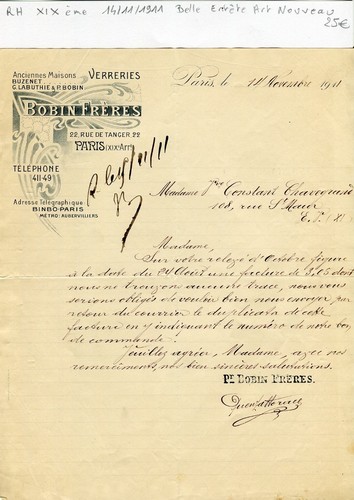 RH XIX ème 14/11/1911 Belle Entête Art Nouveau
25€
Anciennes Maisons VERRERIES
BUZENET
G. LABUTHIE & P. BOBIN
BOBIN FRÈRES
22, RUE DE TANGER, 22
PARIS (XIX·Arrt)
TÉLÉPHONE
411-49
Adresse Télégraphique
BINBO-PARIS
MÉTRO: AUBERVILLIERS
Paris, le 14 Novembre 1911
Madame Vve Constant
108, rue St Maur
E. V. (XI
Madame,
Sur votre relevé d'Octobre figure
à la date du 24 Août une facture de 3,15 dont
nous ne trouvons aucune trace, nous vous
serions obligés de vouloir bien nous envoyer, par
retour du courrier le duplicata de cette
facture en y indiquant le numéro de notre bon
de commande.
Veuillez agréer, Madame, avec nos
remerciements nos bien sincères salutations.
Pr BOBIN FRÈRES.